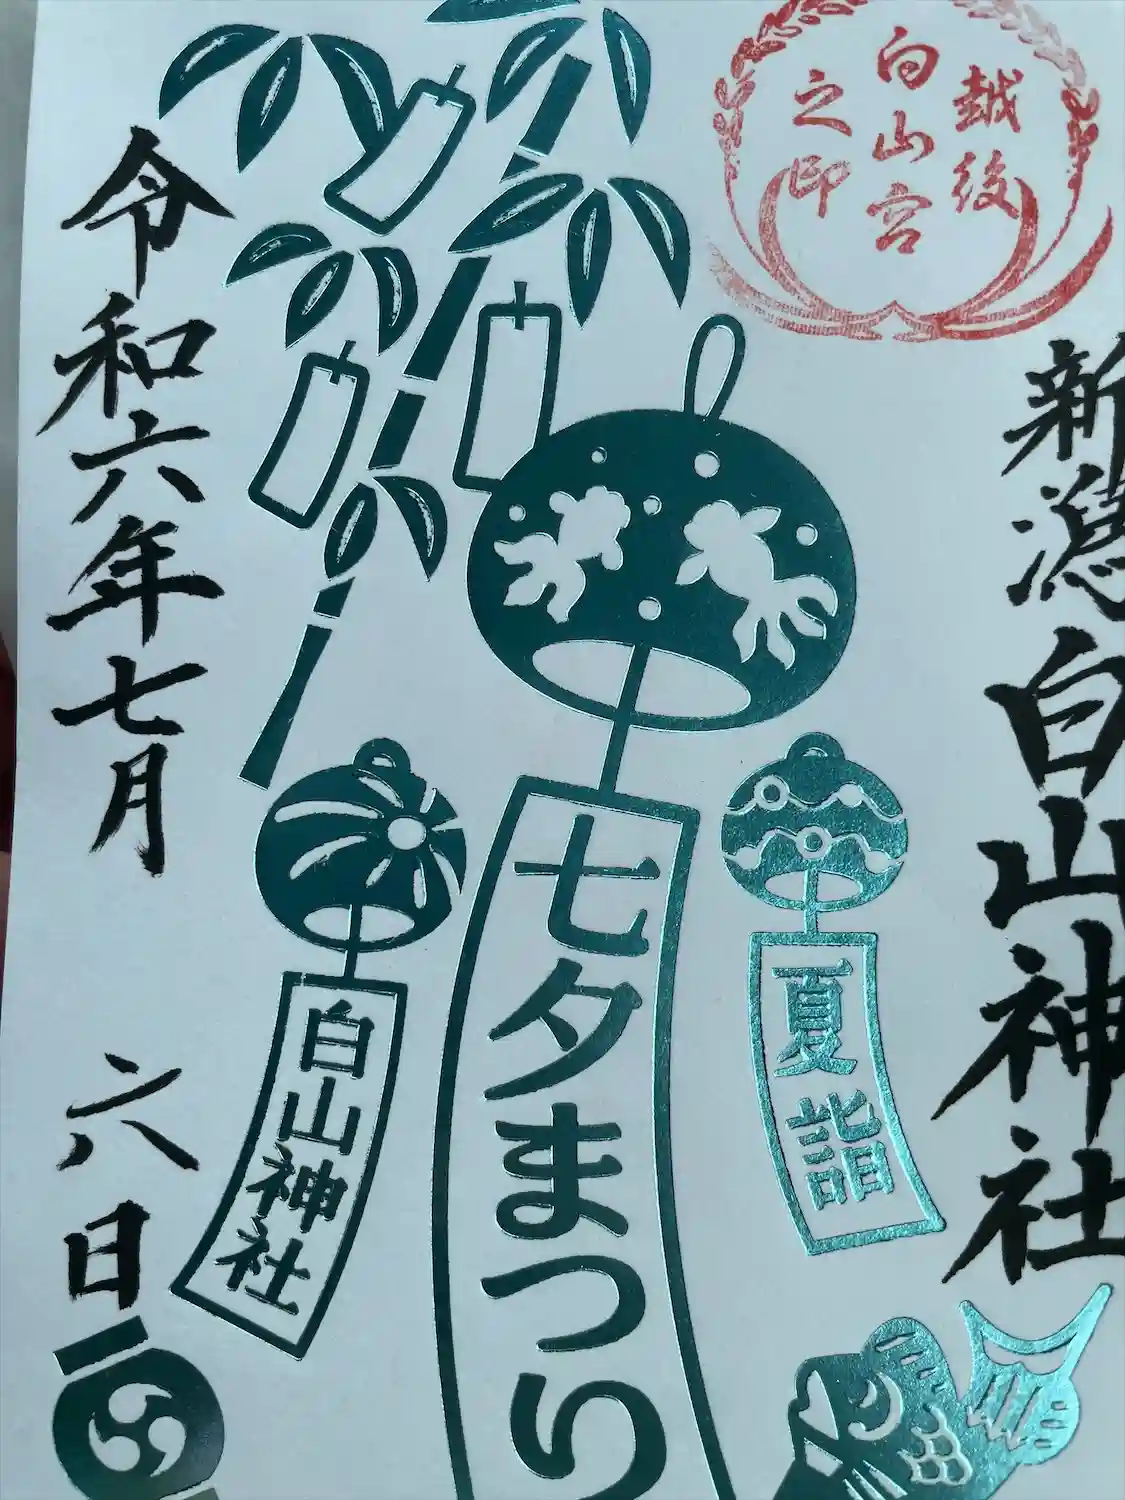 越後
白山宮
之印
新潟白山神社
夏詣
七夕まつり
白山神社
令和六年七月 六日